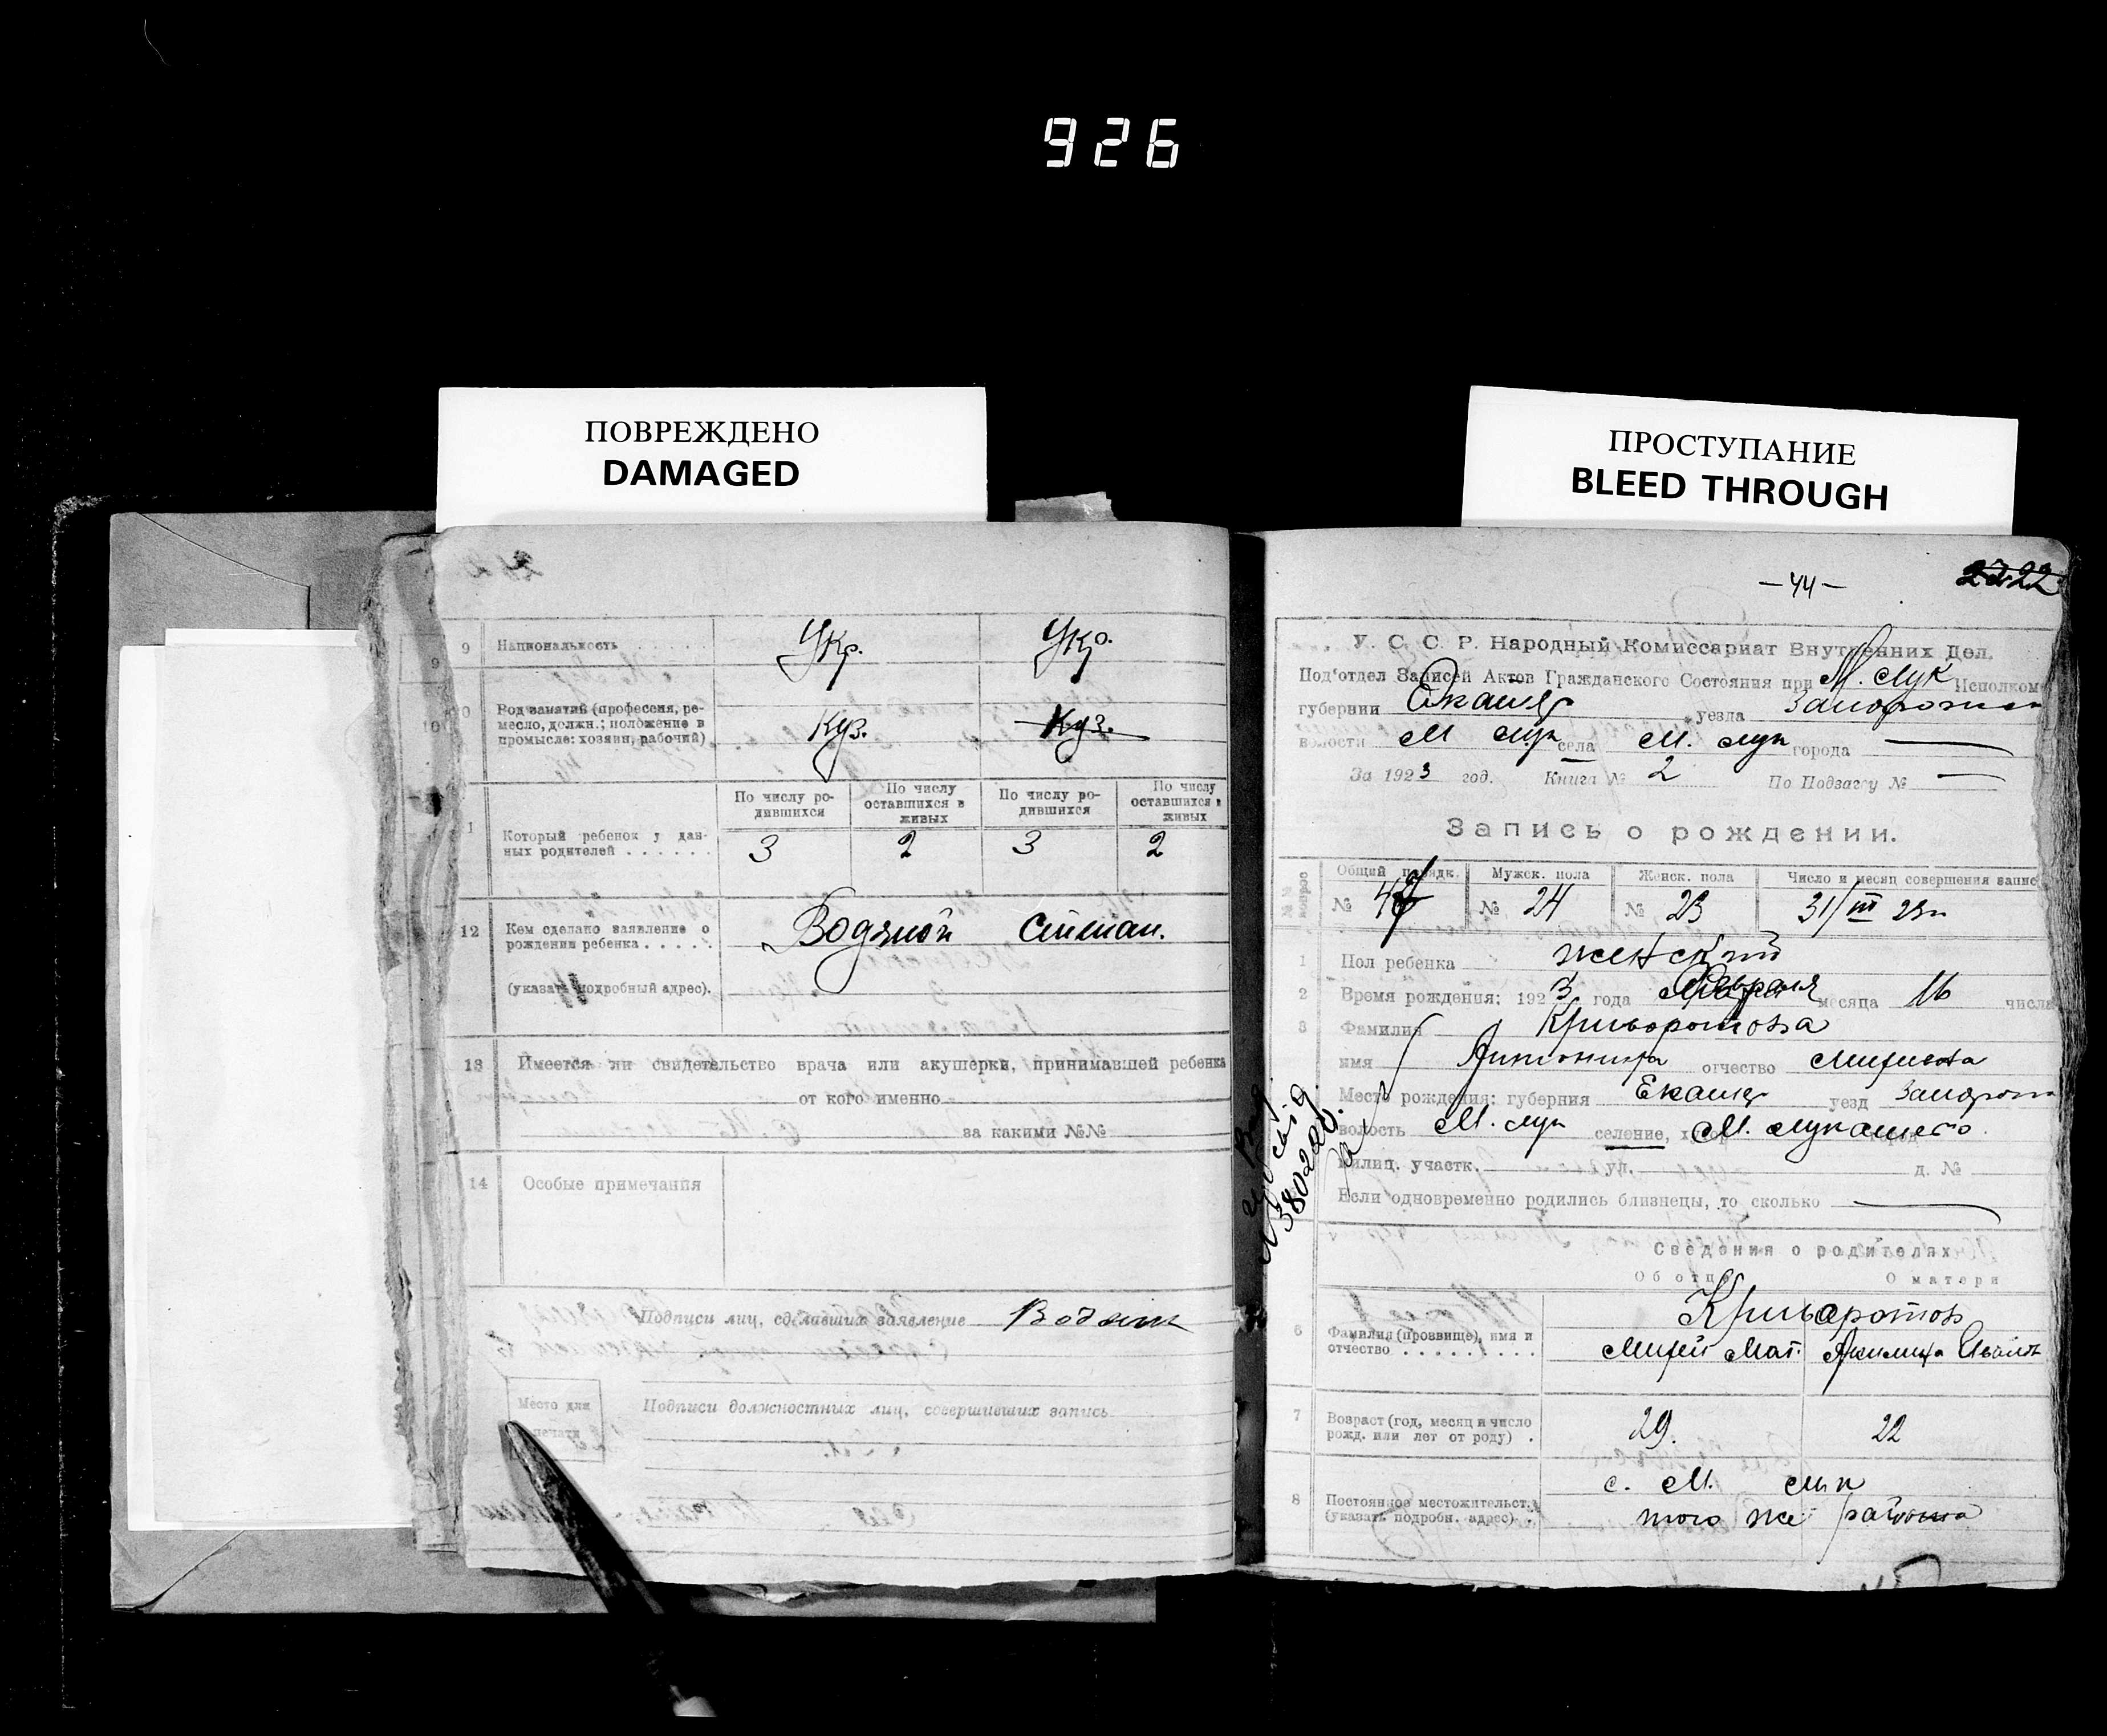 926
ПОВРЕЖДЕНО
DAMAGED
ПРОСТУПАНИЕ
BLEED THROUGH
9 Национальность Укр. Укр.
10 Род занятий (профессия, ре-
месло, должн.; положение в
промысле: хозяин, рабочий) Куз. Куз.
По числу ро-
дившихся
По числу
оставшихся в
живых
По числу ро-
дившихся
По числу
оставшихся в
живых
Который ребенок у дан-
ных родителей 3 2 3 2
12 Кем сделано заявление о
рождении ребенка Водяной Степан.
(указать подробный адрес).
13 Имеется ли свидетельство врача или акушерки, принимавшей ребенка
от кого именно
за какими №№
14 Особые примечания
Подписи лиц, сделавших заявление
Место для
печати
Подписи должностных лиц, совершивших запись
— 44 —
22
У. С. С. Р. Народный Комиссариат Внутренних Дел.
Под'отдел Записей Актов Гражданского Состояния при М. Лук Исполком
губернии Екатер уезда
волости М Лук села М. Лук города —
За 1923 год. Книга № 2 По Подзагсу № —
Запись о рождении.
Общий порядк. Мужск. пола Женск. пола Число и месяц совершения запис
№ № 24 № 23 31/III 23г
1 Пол ребенка женский
2 Время рождения: 1923 года Февраля месяца 16 числа
3 Фамилия Криворотова
имя Антонина отчество
Место рождения: губерния Екатер уезд
волость М. Лук селение, М. Лукашево
милиц. участк. ул. д. №
Если одновременно родились близнецы, то сколько —
380220
Сведения о родителях
Об отце О матери
6 Фамилия (прозвище), имя и
отчество
Криворотов
Мат.
7 Возраст (год, месяц и число
рожд. или лет от роду) 29. 22
8 Постоянное местожительст.
(указать подробн. адрес)
с. М. Лук
того же района